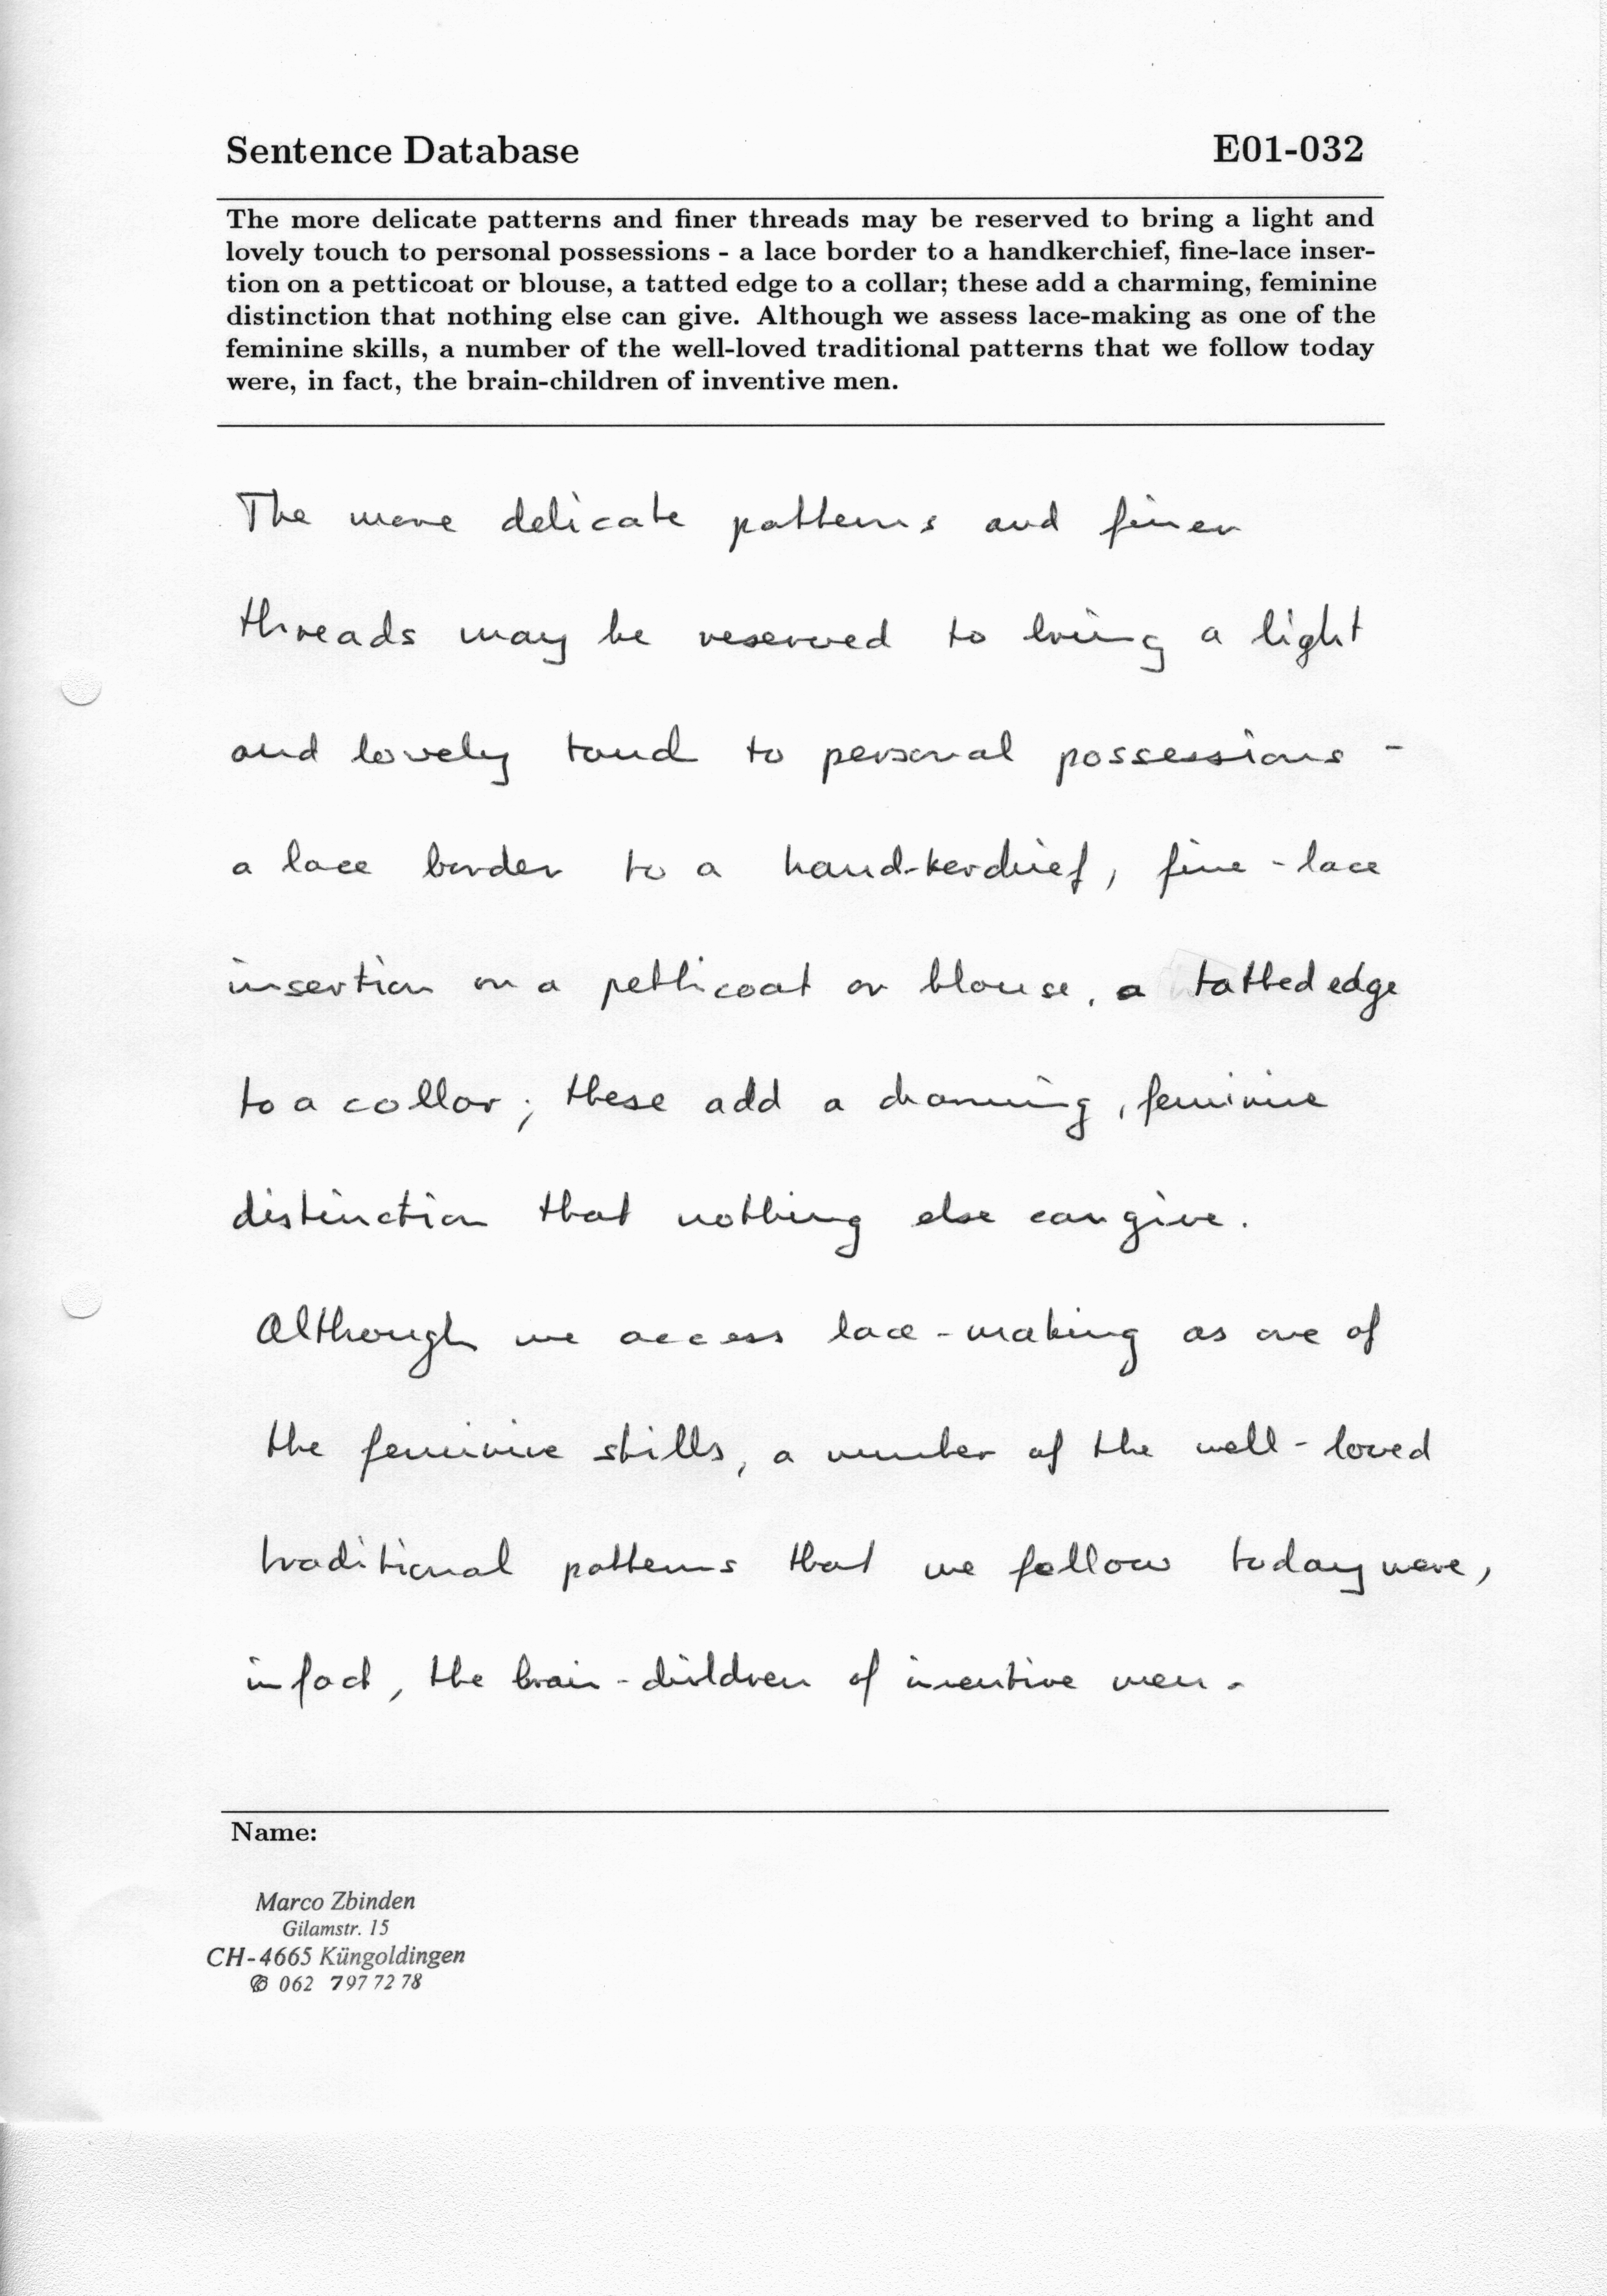 Sentence Database E01-032
The more delicate patterns and finer threads may be reserved to bring a light and
lovely touch to personal possessions - a lace border to a handkerchief, fine-lace inser-
tion on a petticoat or blouse, a tatted edge to a collar; these add a charming, feminine
distinction that nothing else can give. Although we assess lace-making as one of the
feminine skills, a number of the well-loved traditional patterns that we follow today
were, in fact, the brain-children of inventive men.
The more delicate patterns and finer
threads may be reserved to bring a light
and lovely touch to personal possessions -
a lace border to a hand-kerchief, fine-lace
insertion on a petticoat or blouse, a tatted edge
to a collar; these add a charming, feminine
distinction that nothing else can give.
Although we access lace-making as one of
the feminine skills, a number of the well-loved
traditional patterns that we follow today were,
in fact, the brain-children of inventive men.
Name:
Marco Zbinden
Gilamstr. 15
CH-4665 Küngoldingen
✆ 062 797 72 78